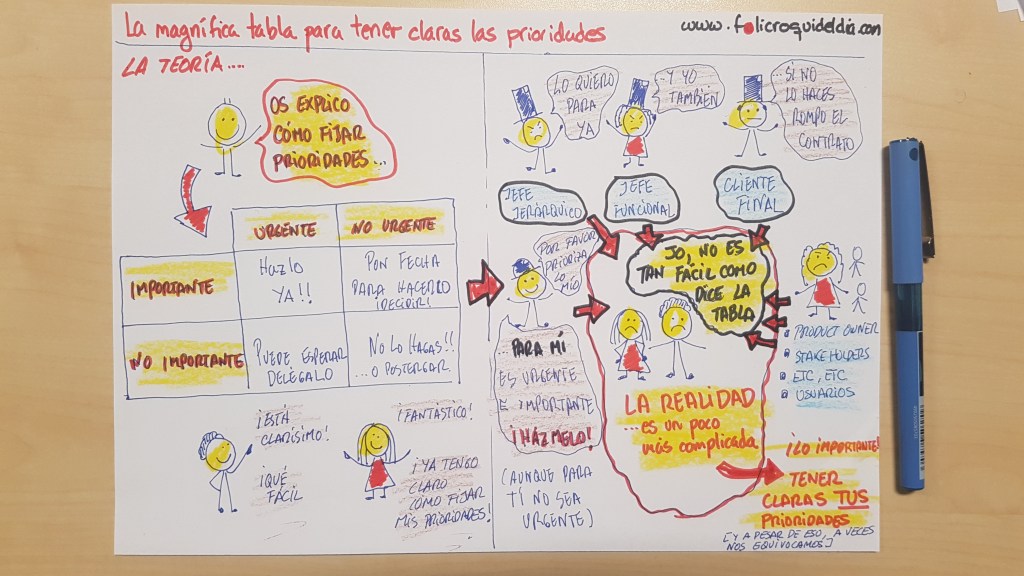 La magnífica tabla para tener claras las prioridades
www.folicroquideldia.com
LA TEORÍA....
OS EXPLICO
CÓMO FIJAR
PRIORIDADES...
URGENTE
NO URGENTE
IMPORTANTE
Hazlo
YA!!
PON FECHA
PARA HACERLO
¡DECIDIR!
NO IMPORTANTE
PUEDE ESPERAR
DELÉGALO
NO LO HAGAS!!
...O POSTERGAR.
¡ESTÁ
CLARÍSIMO!
¡QUÉ
FÁCIL
¡FANTÁSTICO!
¡YA TENGO
CLARO
CÓMO FIJAR
MIS PRIORIDADES!
LO QUIERO
PARA
YA
...Y YO
TAMBIÉN
...SI NO
LO HACES
ROMPO EL
CONTRATO
JEFE
JERÁRQUICO
JEFE
FUNCIONAL
CLIENTE
FINAL
POR FAVOR
PRIORIZA
LO
MÍO
JO, NO ES
TAN FÁCIL COMO
DICE LA
TABLA
...PARA MÍ
ES URGENTE
E IMPORTANTE
¡HÁZMELO!
(AUNQUE PARA
TÍ NO SEA
URGENTE)
PRODUCT OWNER
STAKEHOLDERS
ETC, ETC
USUARIOS
LA REALIDAD
...es un poco
más complicada
¡LO IMPORTANTE!
TENER
CLARAS TUS
PRIORIDADES
[Y A PESAR DE ESO, A VECES
NOS EQUIVOCAMOS]